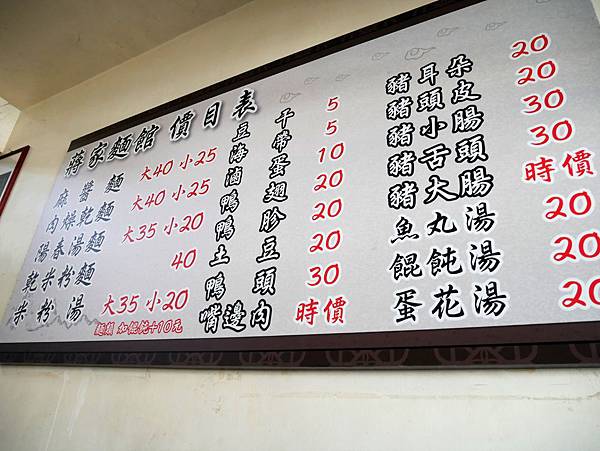 蔣家麵館 價目表
麻醬麵 大40 小25
肉燥乾麵 大40 小25
陽春湯麵 大35 小20
乾米粉麵 40
米粉湯 大35 小20
麵類 加餛飩+10元
豆干 5
海帶 5
滷蛋 10
鴨翅 20
鴨胗 20
土豆 20
鴨頭 30
嘴邊肉 時價
豬耳朵 20
豬頭皮 20
豬小腸 30
豬舌頭 30
豬大腸 時價
魚丸湯 20
餛飩湯 20
蛋花湯 20